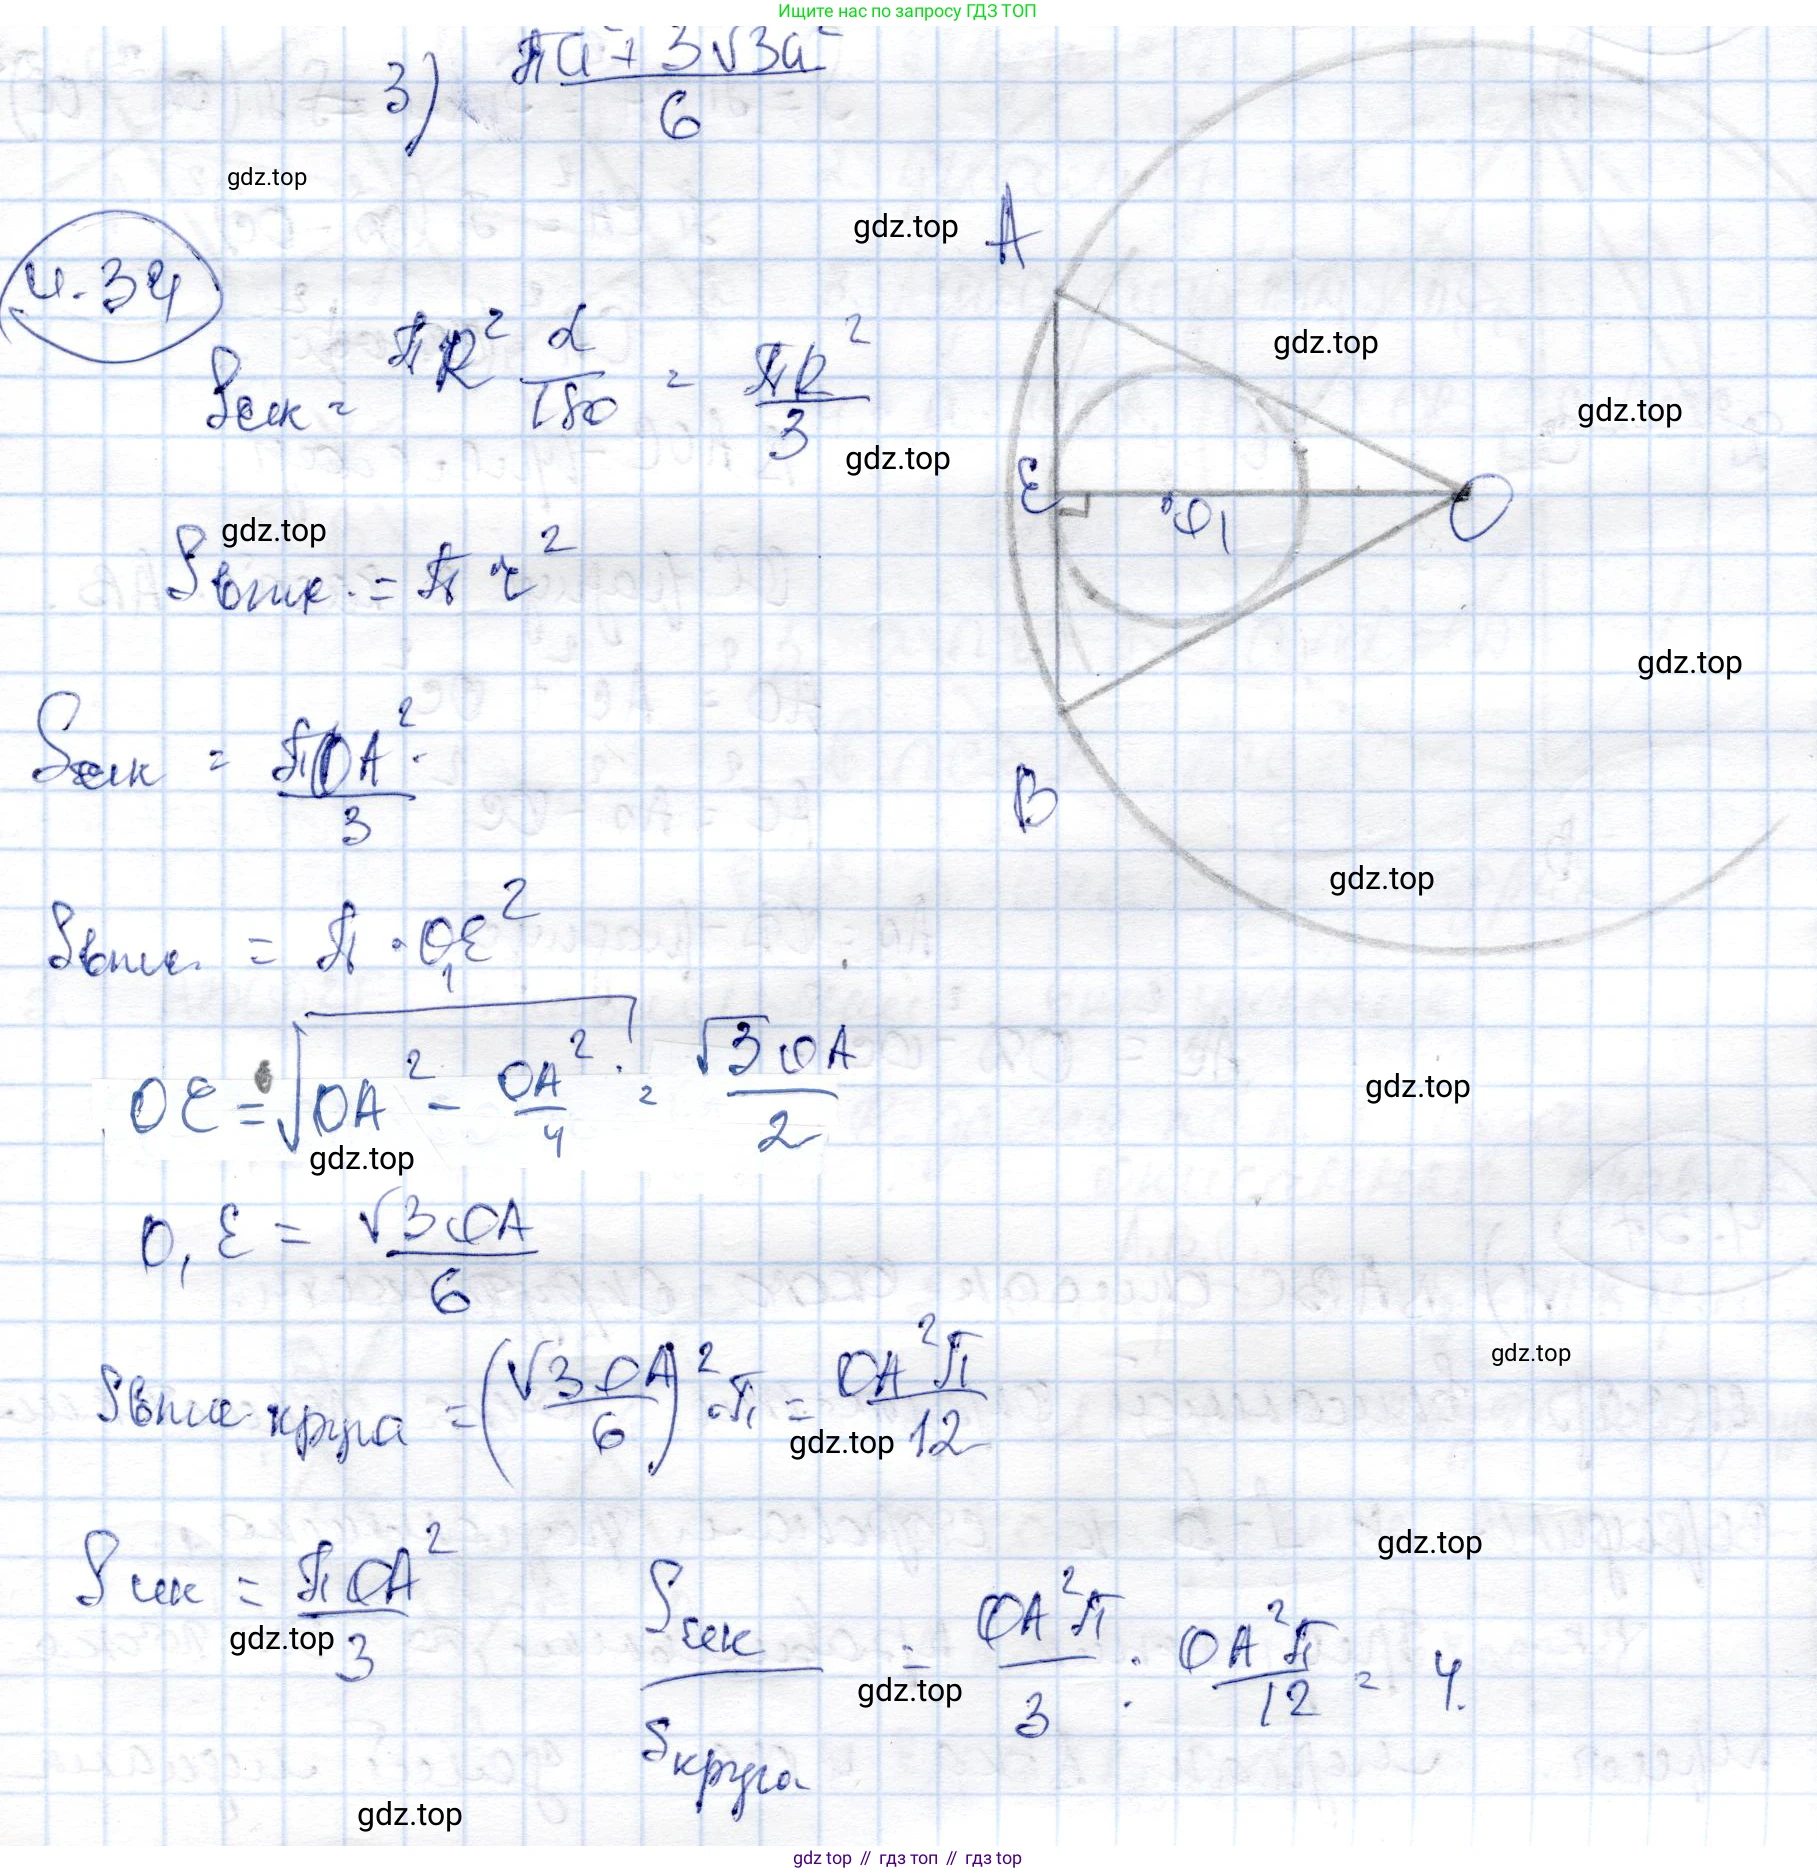 Ищите нас по запросу ГДЗ ТОП
3) (πa² + 3√3a²) / 6
gdz.top
gdz.top
A
4.34
Sсек = πR² α/180 = πR²/3
gdz.top
gdz.top
gdz.top
E
O₁
O
gdz.top
Sвпис. = π · r²
gdz.top
Sсек = πOA²/3
B
gdz.top
Sвпис. = π · O₁E²
OE = √(OA² - OA²/4) = √3OA/2
gdz.top
gdz.top
O₁E = √3OA/6
gdz.top
Sвпис. круга = (√3OA/6)² · π = OA²π/12
gdz.top
gdz.top
Sсек = πOA²/3
gdz.top
Sсек/Sкруга = OA²π/3 : OA²π/12 = 4.
gdz.top
gdz.top
gdz top // гдз топ // гдз top